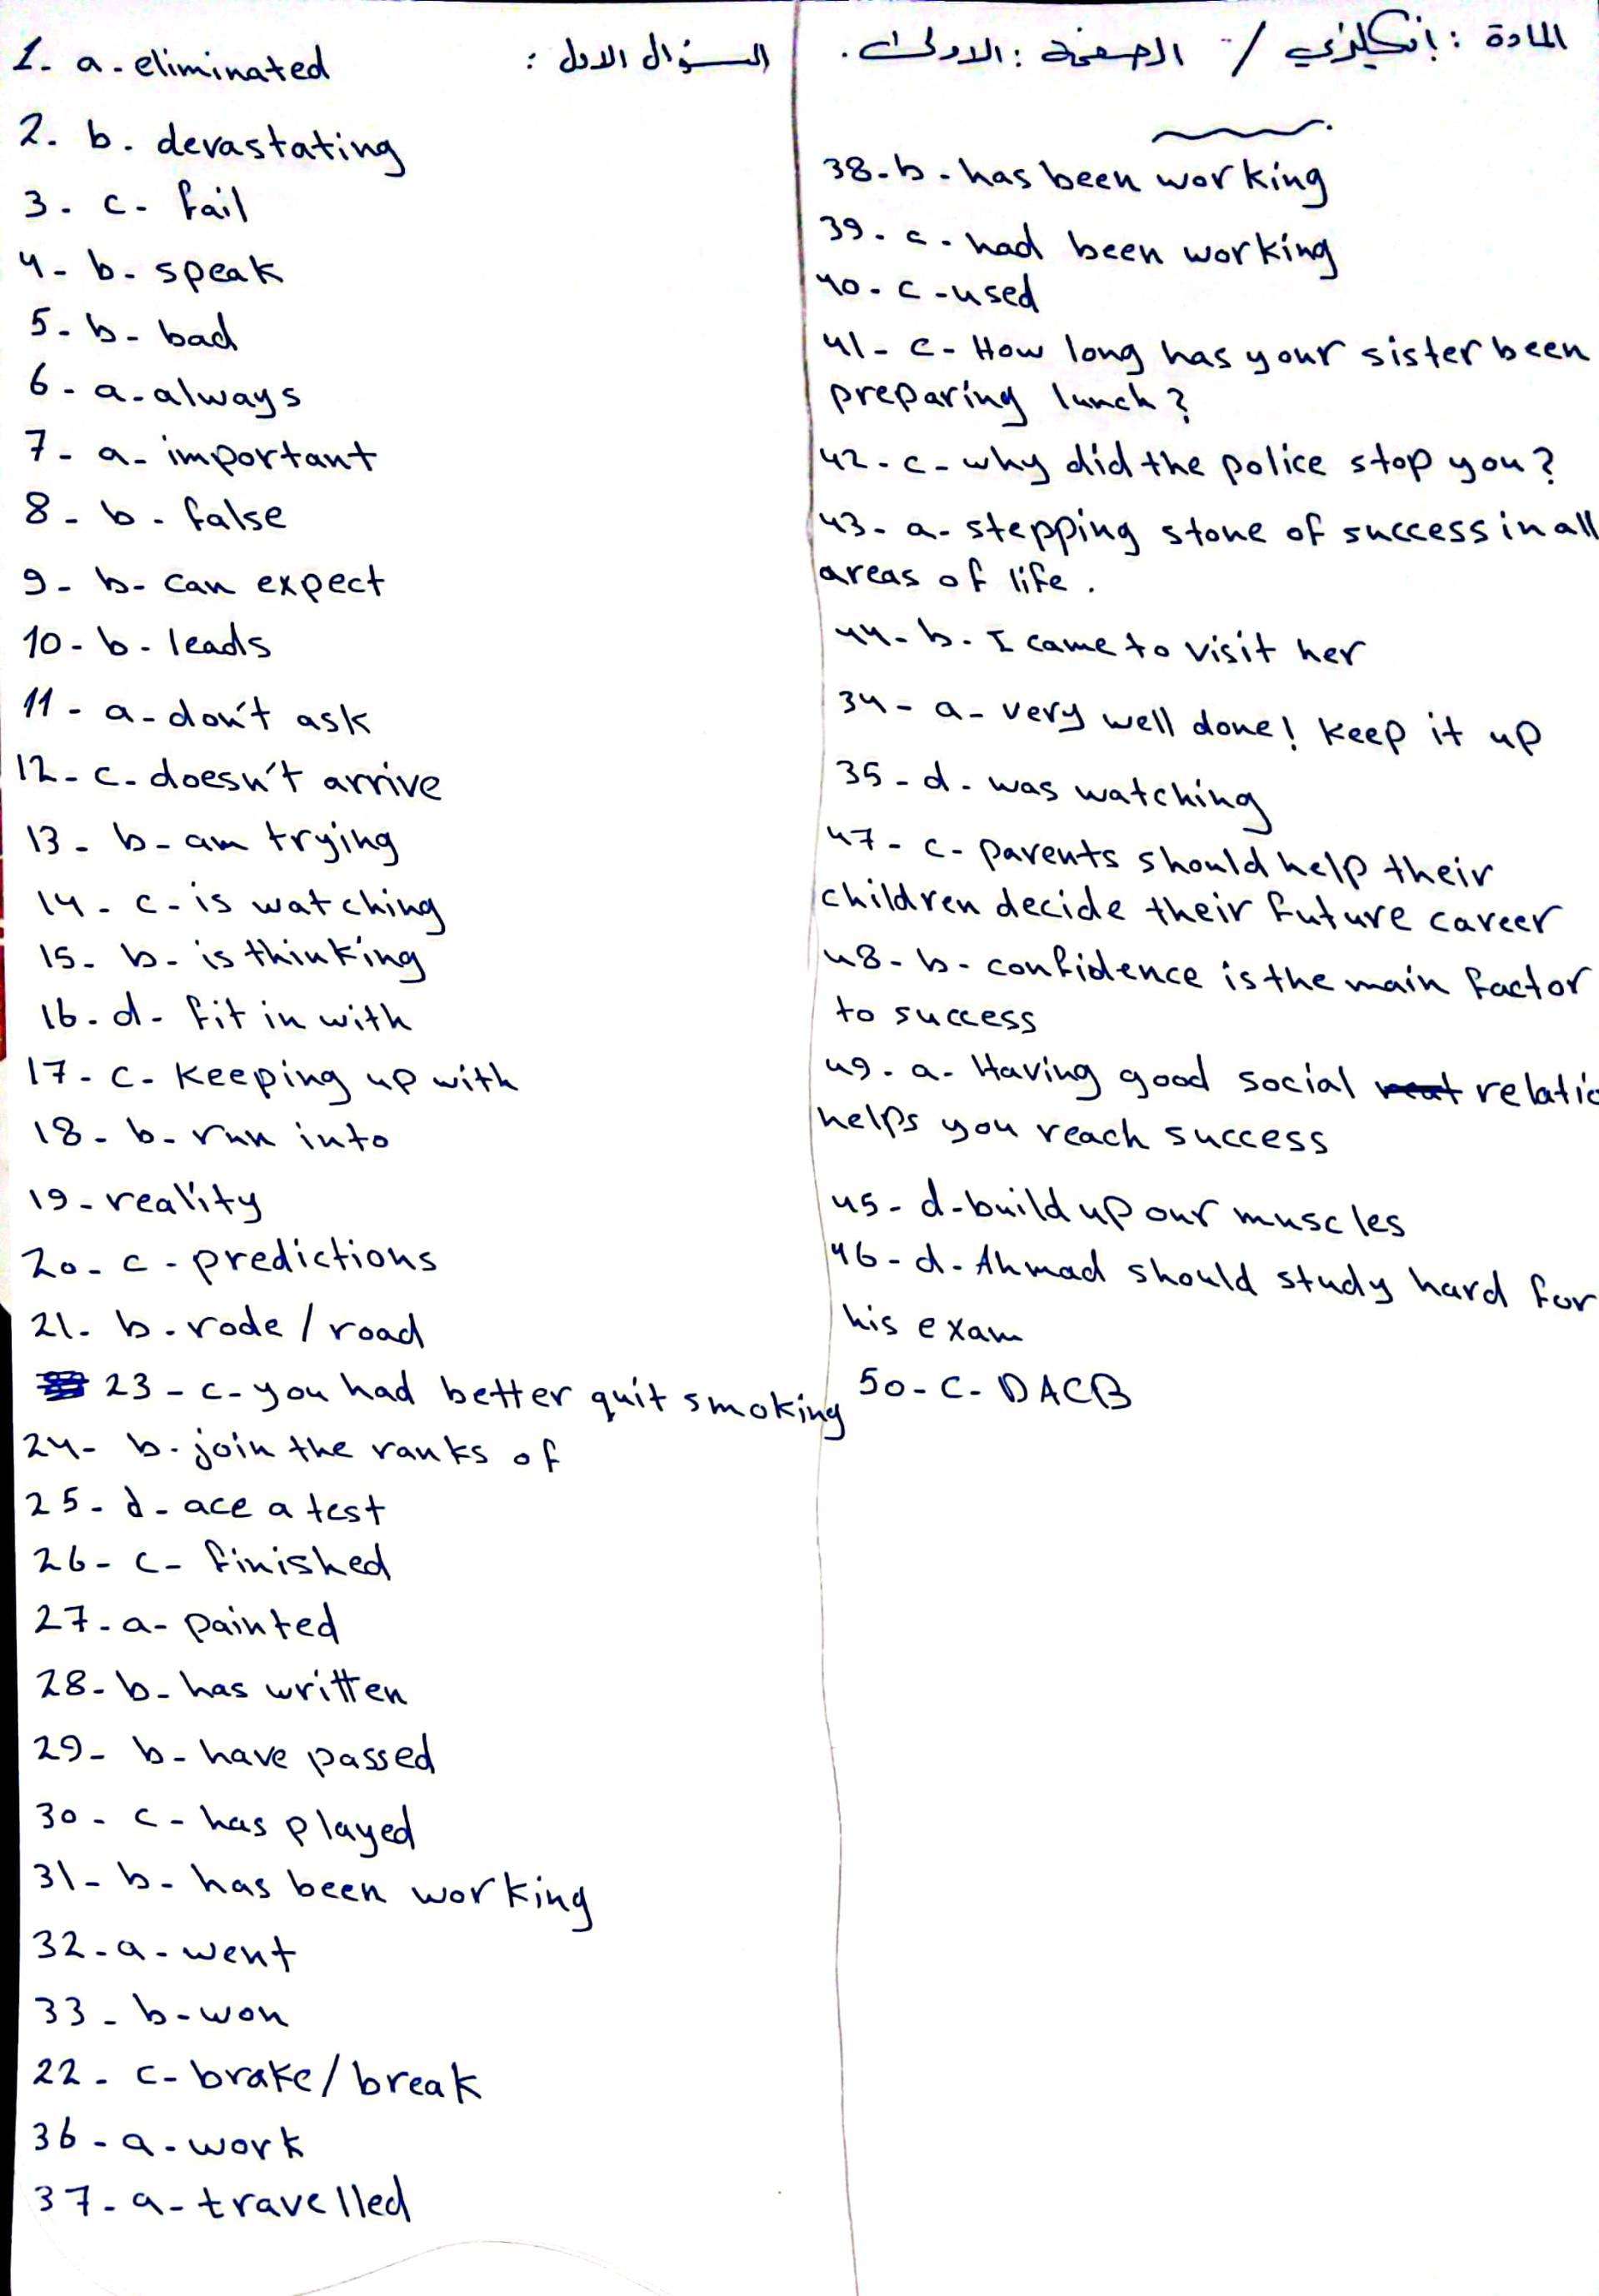 المادة : إنكليزي / الصفحة : الاولى .
السؤال الاول :
1. a. eliminated
2. b. devastating
3. c. fail
4. b. speak
5. b. bad
6. a. always
7. a. important
8. b. false
9. b. can expect
10. b. leads
11. a. don't ask
12. c. doesn't arrive
13. b. am trying
14. c. is watching
15. b. is thinking
16. d. fit in with
17. c. keeping up with
18. b. run into
19. reality
20. c. predictions
21. b. rode / road
23 - c- you had better quit smoking
24- b. join the ranks of
25- d- ace a test
26- c- finished
27- a- painted
28- b- has written
29- b- have passed
30- c- has played
31- b- has been working
32- a- went
33- b- won
22- c- brake/break
36- a- work
37- a- travelled
38- b- has been working
39- c- had been working
40- c- used
41- c- How long has your sister been
preparing lunch?
42- c- why did the police stop you?
43- a- stepping stone of success in all
areas of life.
44- b. I came to visit her
34- a- very well done! keep it up
35- d- was watching
47- c- parents should help their
children decide their future career
48- b- confidence is the main factor
to success
49- a- Having good social
helps you reach success
45- d- build up our muscles
46- d- Ahmad should study hard for
his exam
50- c- DACB